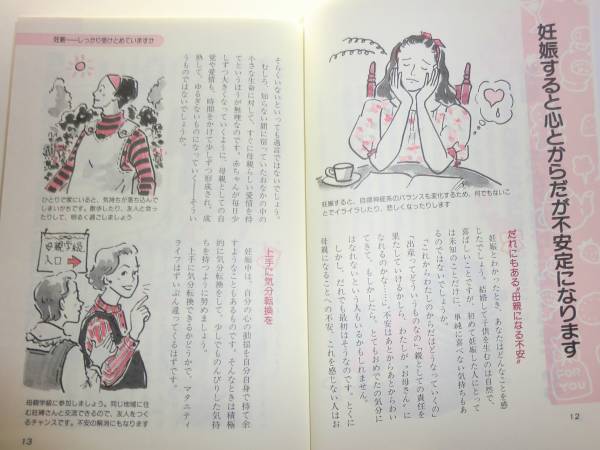 妊娠すると心とからだが不安定になります
妊娠すると、自律神経系のバランスも変化するため、何でもないこ
とでイライラしたり、悲しくなったりします
だれにもある“母親になる不安”
妊娠とわかったとき、あなたはどんなことを感
じたでしょう。結婚して子供を生むのは自然で、
喜ばしいことですが、初めて妊娠した人にとって
は未知のことだけに、単純に喜べない気持ちもあ
るのではないでしょうか。
「これからわたしのからだはどうなっていくの」
「出産ってどういうものなの」「親としての責任を
果たしていけるかしら。わたしが“お母さん”に
なれるのかな……」不安はあとからあとからわい
てきて、もしかしたら、とてもおめでたの気分に
はなれないという人もいるかもしれません。
しかし、だれでも最初はそうなのです。とくに
母親になることへの不安、これを感じない人はお
FOR YOU
12
妊娠——しっかり受けとめていますか
そらくいないといっても過言ではないでしょう。
むしろ、知らない間に宿っていたおなかの中の
小さな生命に対して、すぐに母親らしい愛情を持
てというほうが無理なのです。赤ちゃんが毎日少
しずつ大きくなっていくように、母親としての自
覚や愛情も、時間をかけて少しずつ形成され、成
熟して、ゆるぎないものになっていく——そうい
うものではないでしょうか。
上手に気分転換を
妊娠中は、自分の心の動揺を自分自身で持て余
すようなこともあるものです。そんなときは積極
的に気分転換をして、少しでものんびりした気持
ちを持つように努めましょう。
上手に気分転換できるかどうかで、マタニティ
ライフはずいぶん違ってくるはずです。
ひとりで家にいると、気持ちが落ち込んで
しまいがちです。散歩したり、友人と会った
りして、明るく過ごしましょう
母親学級
入口
母親学級に参加しましょう。同じ地域に住
む妊婦さんと交流できるので、友人をつく
るチャンスです。不安の解消にもなります
13